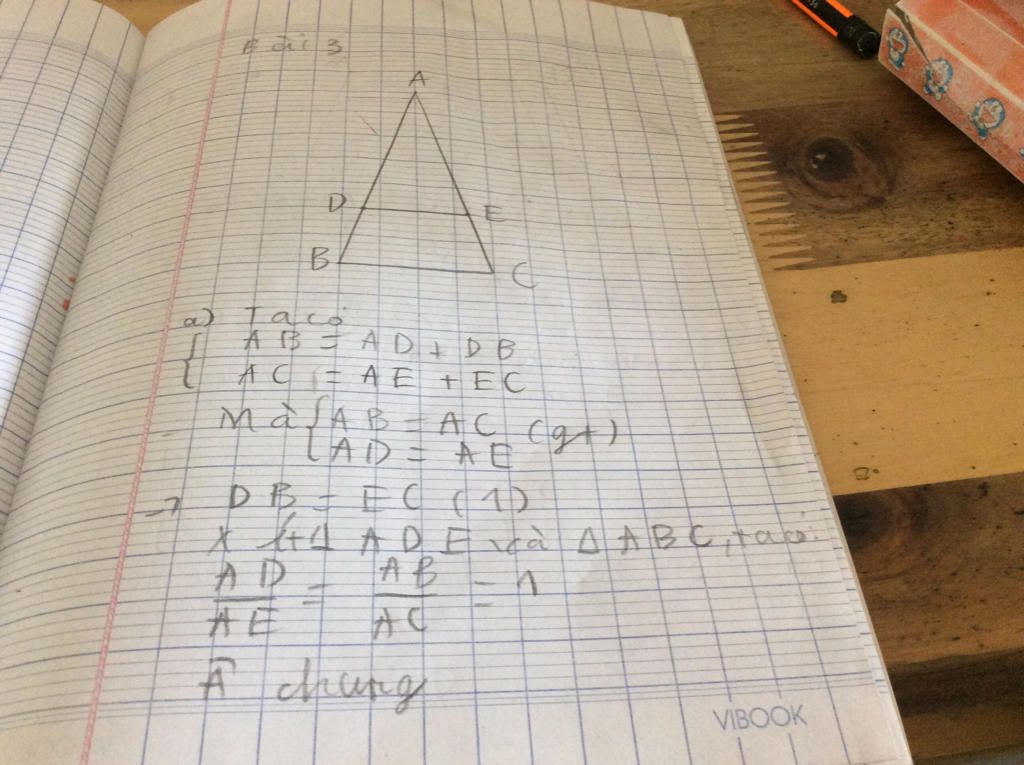 Bài 3
A
D E
B C
a) Ta có
{ AB = AD + DB
{ AC = AE + EC
Mà { AB = AC (gt)
{ AD = AE
→ DB = EC (1)
Xét Δ ADE và Δ ABC, ta có:
AD/AE = AB/AC = 1
Â chung
VIBOOK